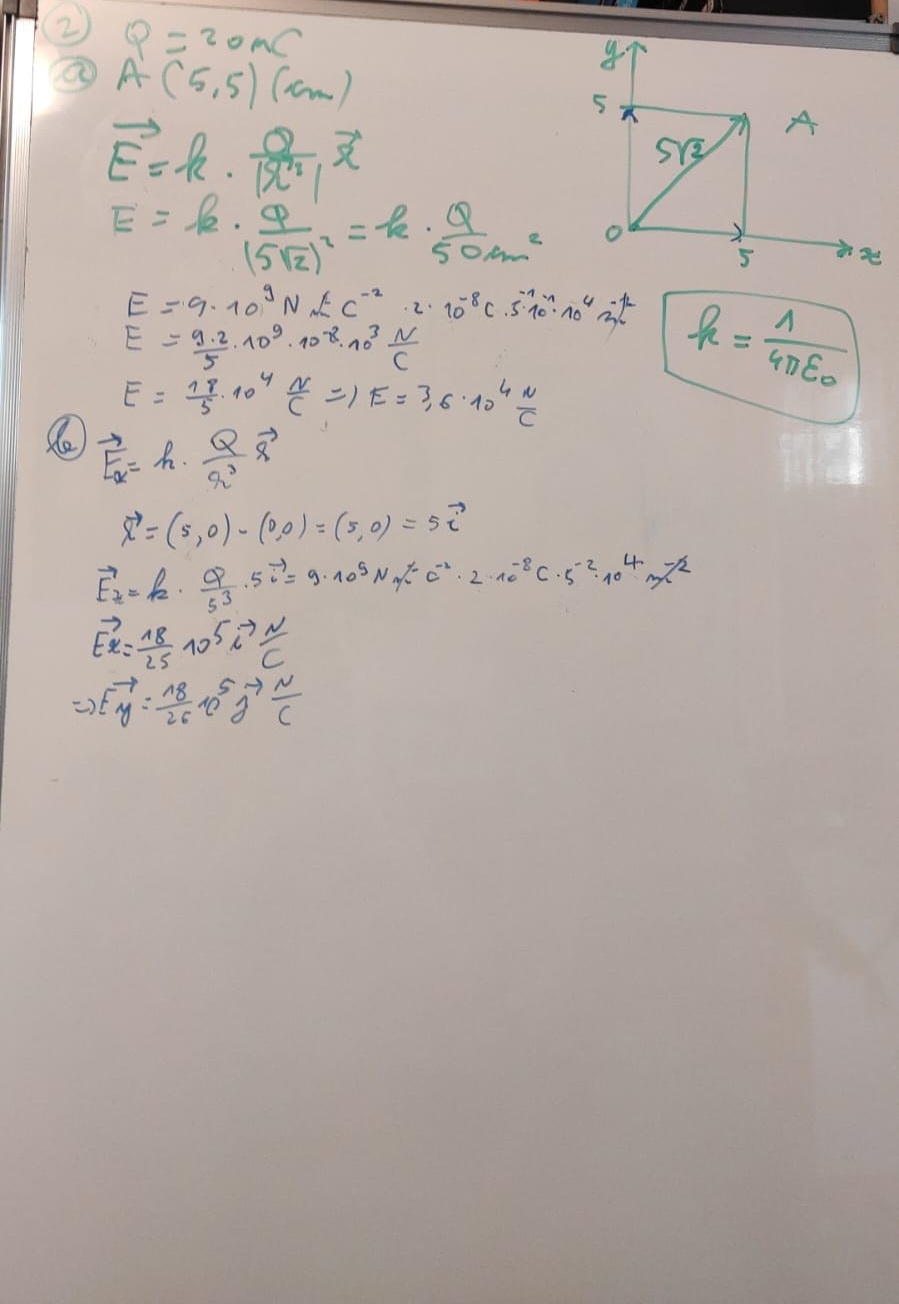 2 Q = 20 nC
a A (5,5) (cm)
y
5
A
5√2
0
5
x
E⃗ = k · Q/|r⃗³| r⃗
E = k · Q/(5√2)² = k · Q/50cm²
k = 1/4πε₀
E = 9·10⁹ N m² C⁻² · 2·10⁻⁸ C · 5⁻¹·10⁻¹·10⁴ m⁻²
E = 9·2/5 · 10⁹ · 10⁻⁸ · 10³ N/C
E = 18/5 · 10⁴ N/C => E = 3,6 · 10⁴ N/C
b E⃗x = k · Q/r³ r⃗
r⃗ = (5,0) - (0,0) = (5,0) = 5i⃗
E⃗x = k · Q/5³ · 5i⃗ = 9·10⁹ N m² C⁻² · 2·10⁻⁸ C · 5⁻² · 10⁴ m⁻²
E⃗x = 18/25 10⁵ i⃗ N/C
=> E⃗y = 18/25 10⁵ j⃗ N/C